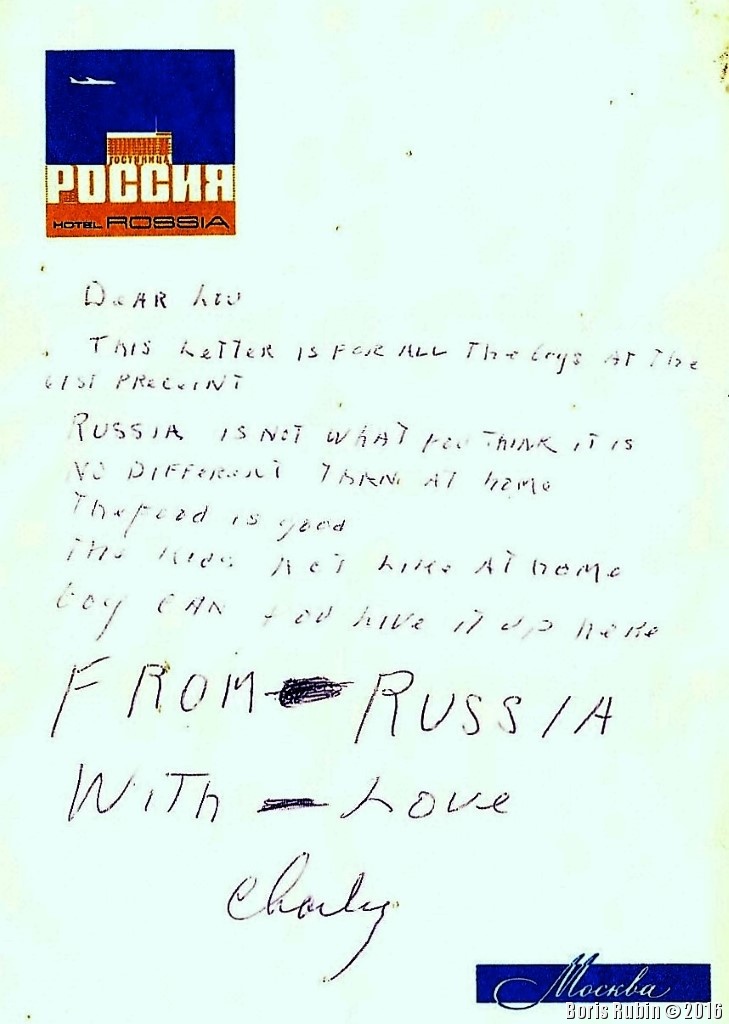 ГОСТИНИЦА
РОССИЯ
HOTEL ROSSIA
DEAR LOU
THIS LETTER IS FOR ALL THE boys AT THE
61ST PRECEINT
RUSSIA IS NOT WHAT YOU THINK IT IS
NO DIFFERENT THAN AT HOME
The food is good
THE KIDS ACT LIKE AT HOME
boy CAN YOU LIVE IT UP HERE
FROM RUSSIA
WITH — LOVE
Charley
Москва
Boris Rubin © 2016